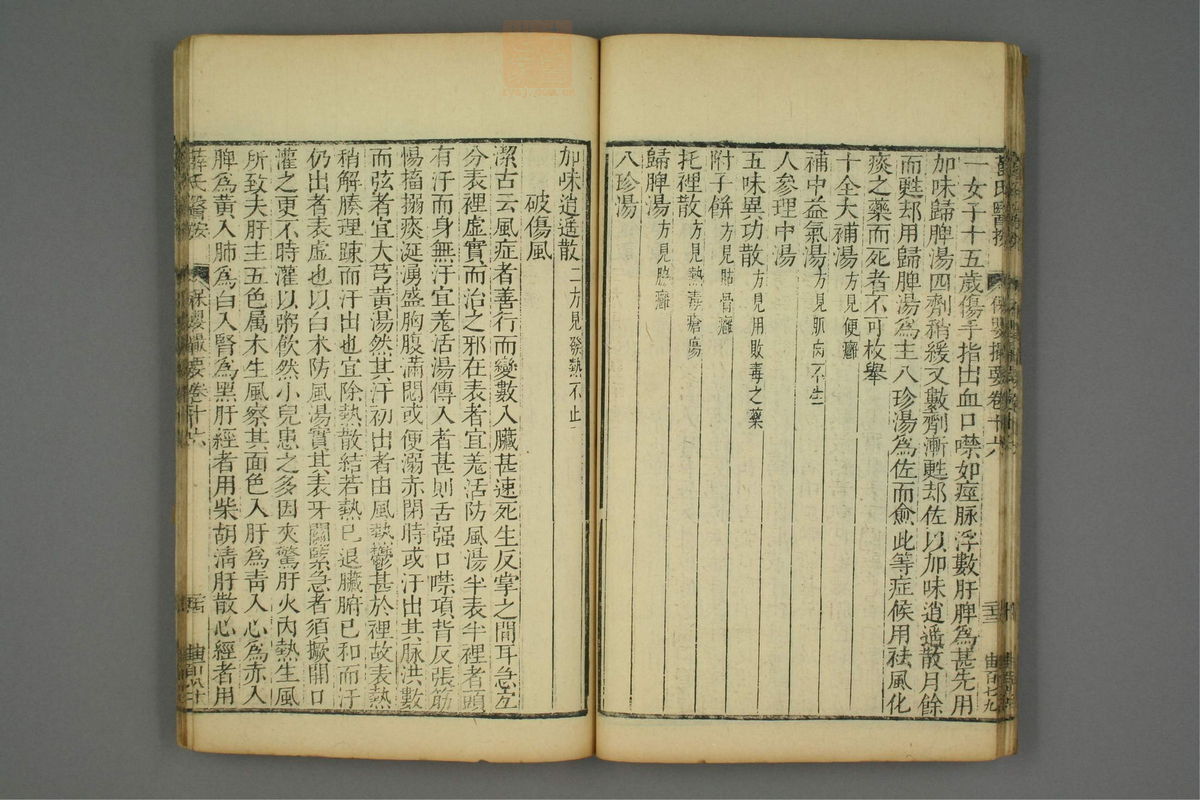 一女子十五歲傷手指出血口噤如痙脉浮數肝脾為甚先用
加味歸脾湯四劑稍緩又數劑漸甦却佐以加味逍遥散月餘
而甦却用歸脾湯為主八珍湯為佐而愈此等症候用祛風化
痰之藥而死者不可枚舉
十全大補湯方見便癰
補中益氣湯方見
人參理中湯
五味異功散方見用敗毒之藥
附子餅方見骨癰
托裡散方見熱毒瘡瘍
歸脾湯方見癰
八珍湯
加味逍遥散二方見發熱不止
破傷風
潔古云風症者善行而變數入臟甚速死生反掌之間耳急左
分表裡虛實而治之邪在表者宜羗活防風湯半表半裡者頭
有汗而身無汗宜羗活湯傳入者甚則舌强口噤項背反張筋
惕搐搦痰涎湧盛胸腹滿悶或便溺赤閉時或汗出其脉洪數
而弦者宜大芎黃湯然其汗初出者由風熱鬱甚於裡故表熱
稍解腠理踈而汗出也宜除熱散結若熱已退臟腑已和而汗
仍出者表虛也以白术防風湯實其表牙關緊急者須撅開口
灌之更不時灌以粥飲然小兒患之多因夾驚肝火内熱生風
所致夫肝主五色屬木生風察其面色入肝為靑入心為赤入
脾為黃入肺為白入腎為黑肝經者用柴胡清肝散心經者用
薛氏醫按
保嬰撮要卷十六